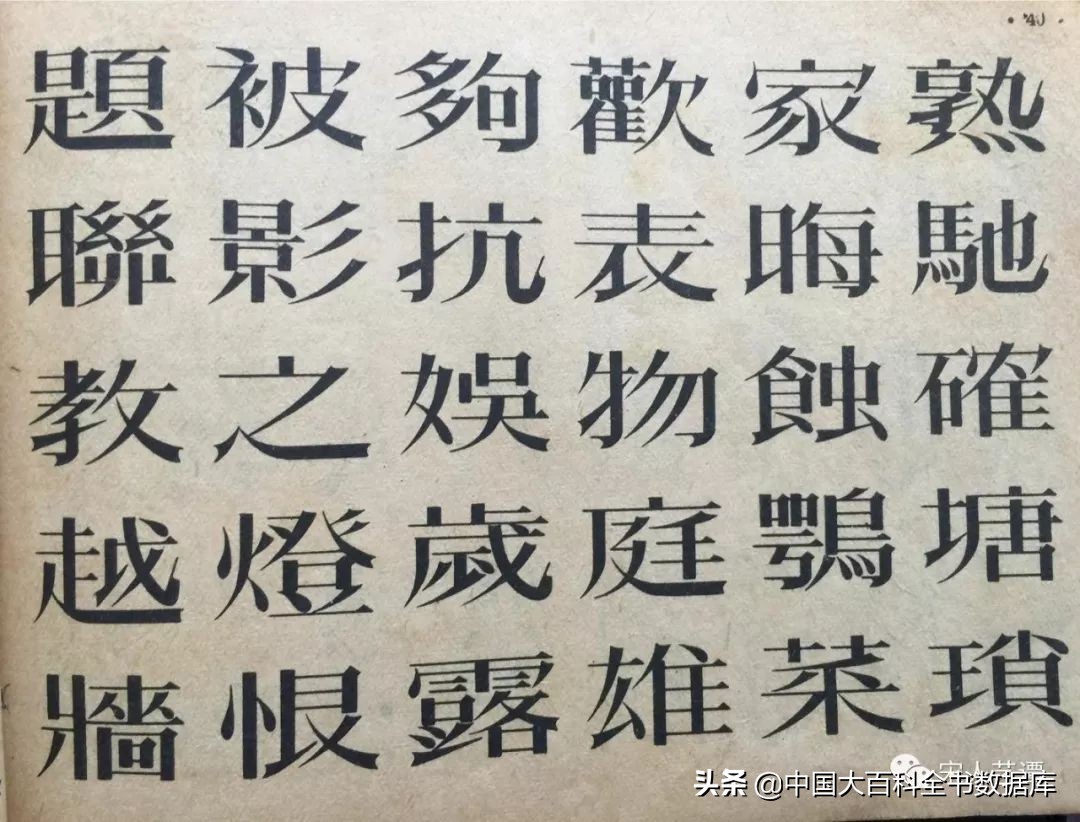 • 40 •
題被夠歡家熟
聯影抗表晦馳
教之娛物蝕確
越燈歲庭鶚塘
牆恨露雄菜瑣
宋人芸谭
头条 @中国大百科全书数据库